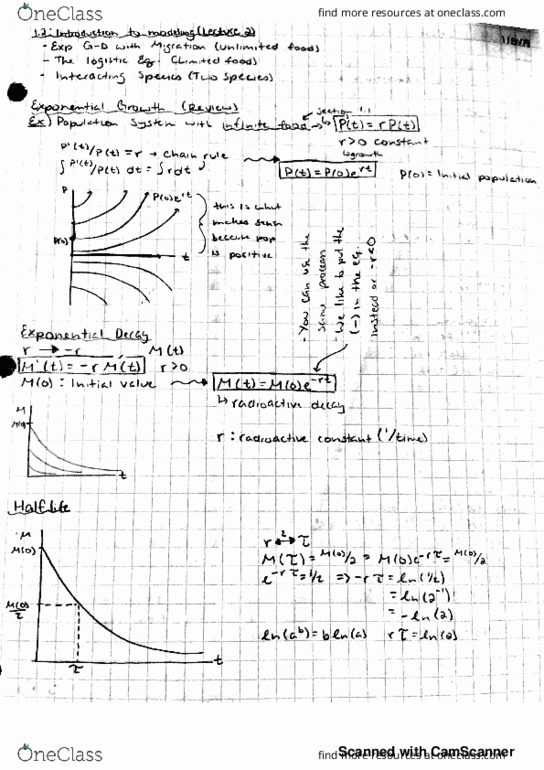 OneClass
find more resources at oneclass.com
1.2: Introduction to modeling (Lecture 2)
- Exp G-D with Migration (unlimited food)
- The logistic Eq. (Limited food)
- Interacting Species (Two species)
Exponential Growth (Review)
Section 1.1
Ex) Population System with infinite food → P'(t) = r P(t)
r>0 constant
growth
P'(t)/P(t) = r → chain rule
∫ P'(t)/P(t) dt = ∫ r dt
P(t) = P(0)e^rt
P(0) = Initial population
P
P(0)
P(0)e^rt
t
this is what
makes sense
because pop
is positive
- You can use the
same process
- We like to put the
(-) in the eq.
instead or -r<0
Exponential Decay
r → -r M(t)
M'(t) = -r M(t) r>0
M(0) : Initial value
M(t) = M(0)e^-rt
↳ radioactive decay
r : radioactive constant (1/time)
M
M(0)
t
Half life
M
M(0)
M(0)/2
τ
t
r ↔ τ
?
M(τ) = M(0)/2 = M(0)e^-rτ = M(0)/2
e^-rτ = 1/2 => -rτ = ln(1/2)
= ln(2^-1)
= -ln(2)
ln(a^b) = b ln(a) rτ = ln(2)
OneClass
find more resources at oneclass.com
Scanned with CamScanner